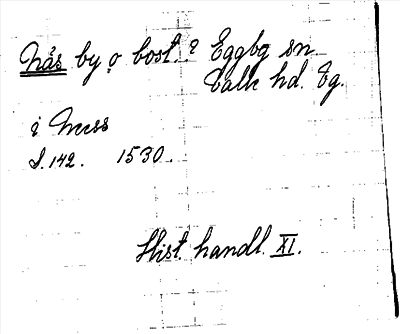 Näs by o bost. i Eggbg sn
Valle hd. Vg.
i Næss
S. 142. 1530.
Hist. handl. XI.